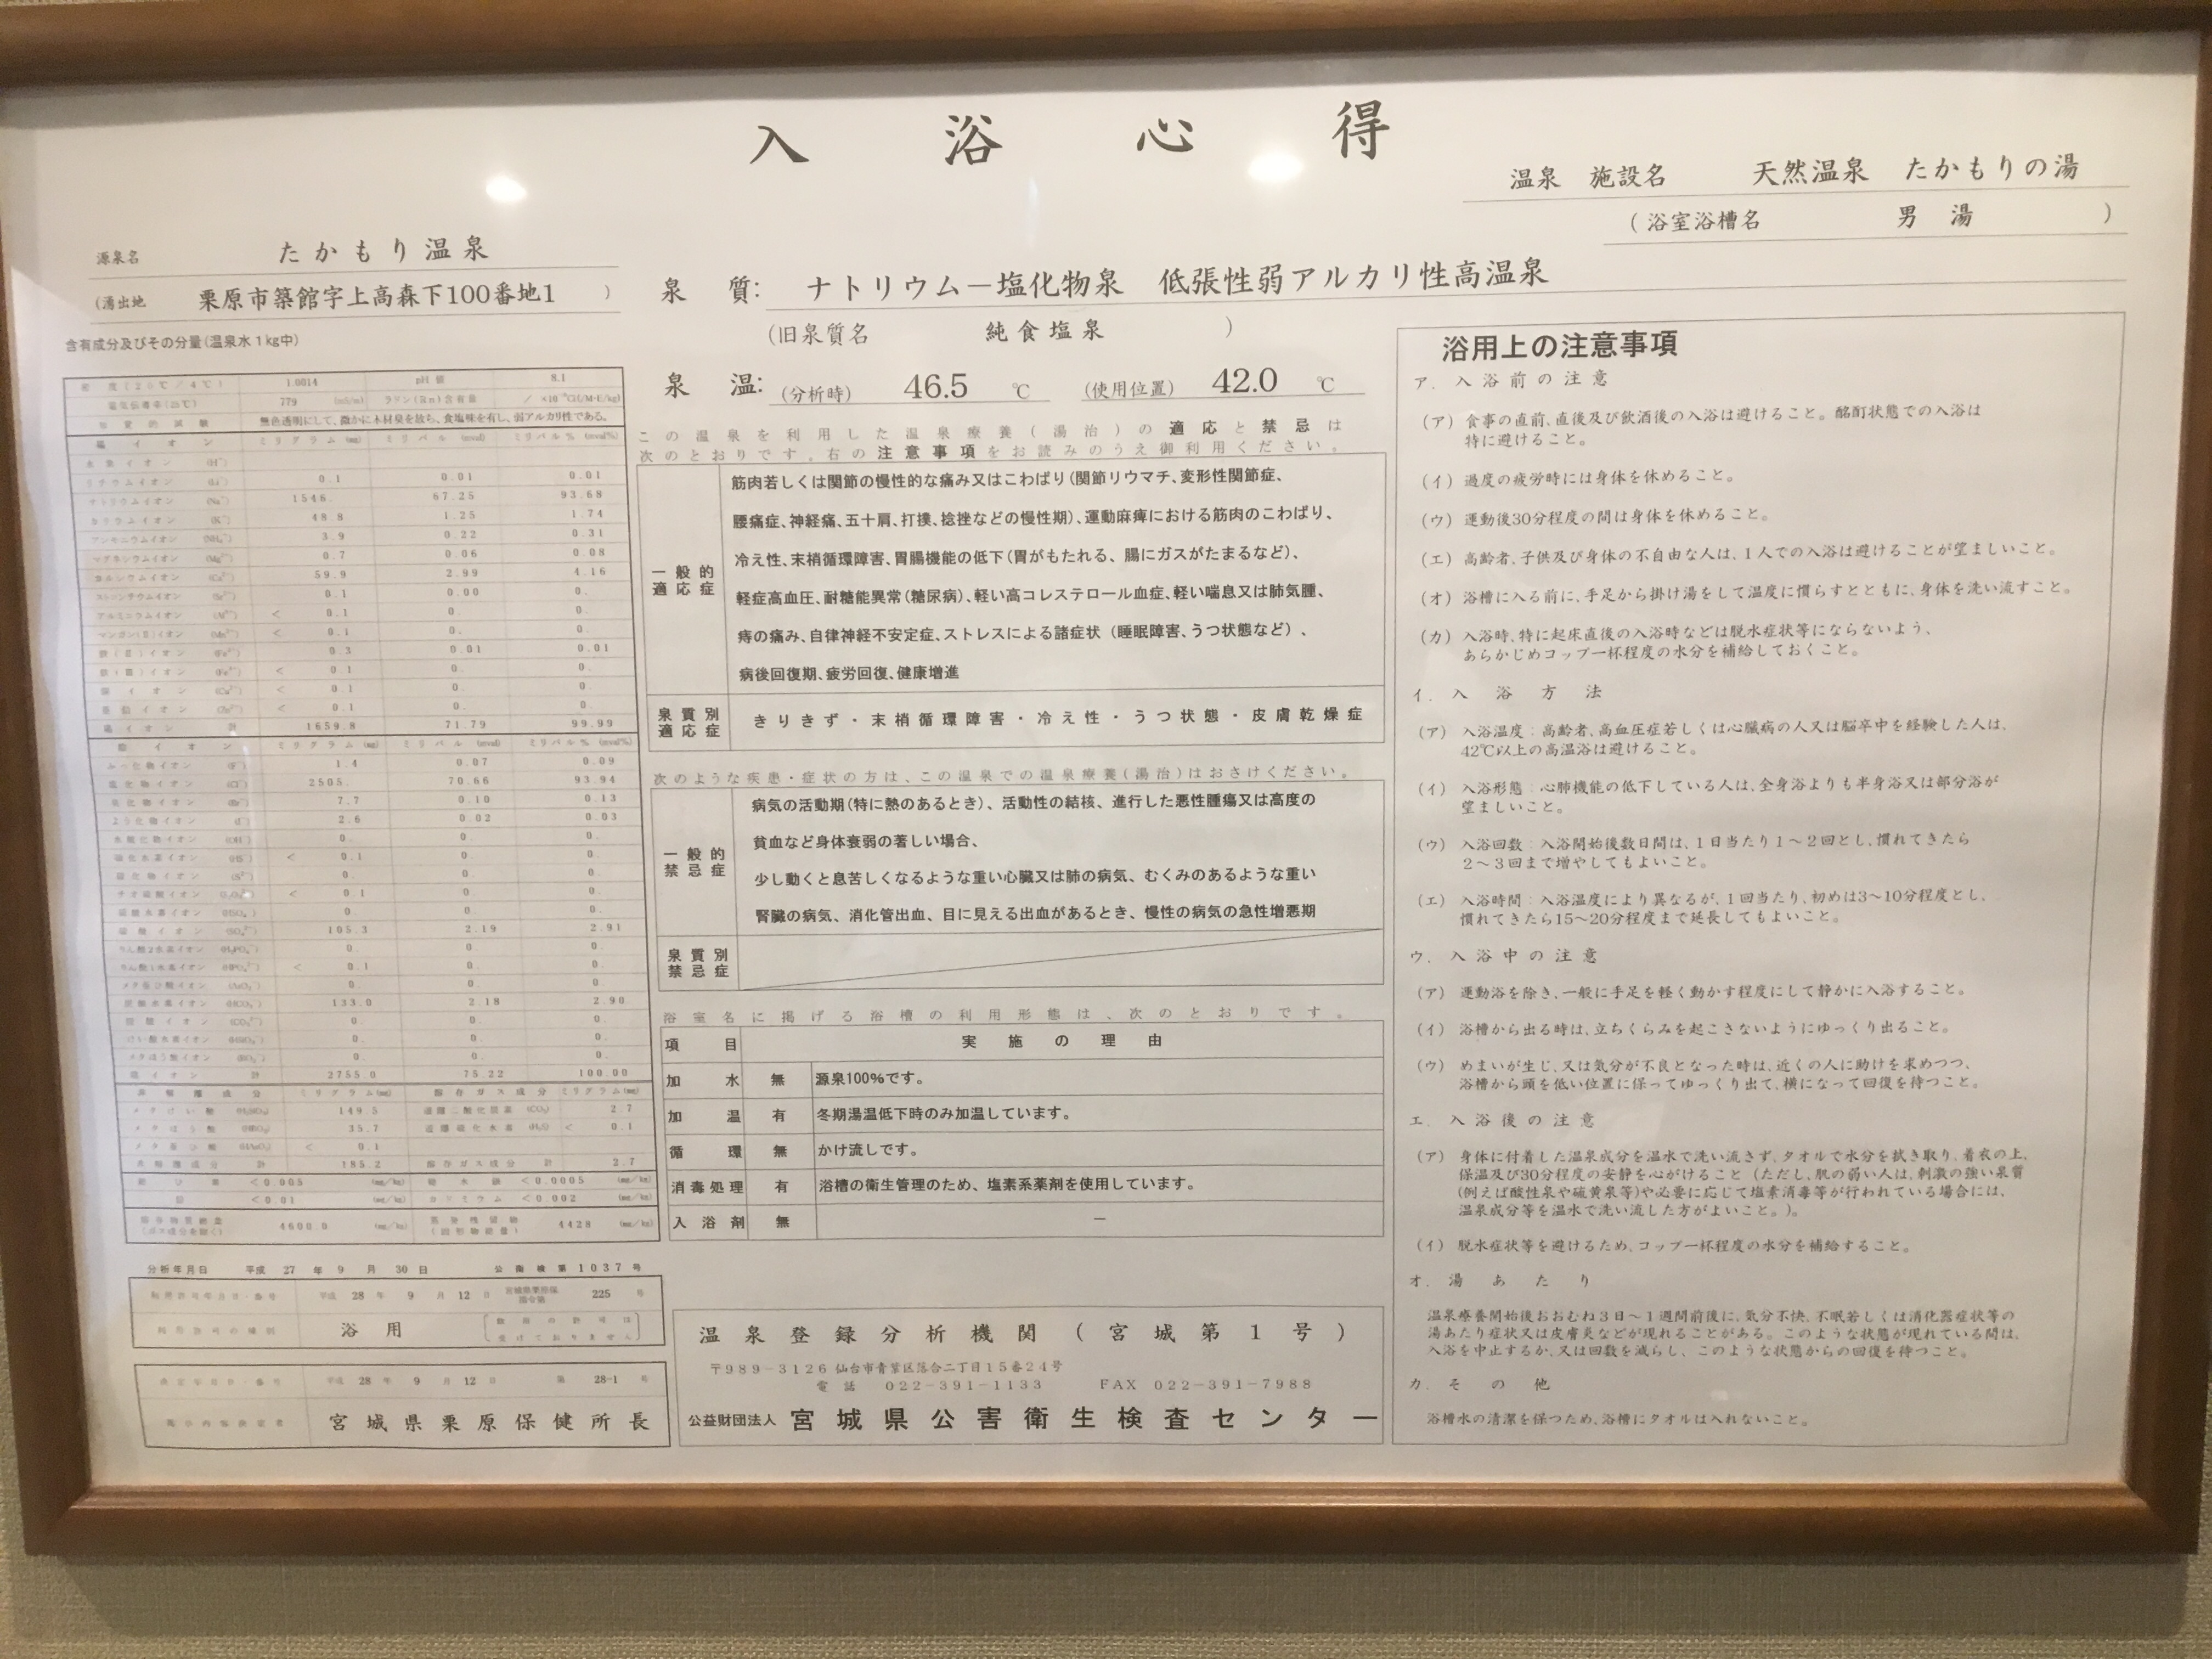 入浴心得
温泉 施設名 天然温泉 たかもりの湯
(浴室浴槽名 男湯 )
源泉名 たかもり温泉
(湧出地 栗原市築館字上高森下100番地1 )
含有成分及びその分量(温泉水1kg中)
密度(20℃/4℃) 1.0014 pH値 8.1
電気伝導率(25℃) 779 (mS/m) ラドン(Rn)含有量
知覚的試験 無色透明にして、微かに木材臭を放ち、食塩味を有し、弱アルカリ性である。
陽イオン ミリグラム(mg) ミリバル(mval) ミリバル%(mval%)
水素イオン (H⁺)
リチウムイオン (Li⁺) 0.1 0.01 0.01
ナトリウムイオン (Na⁺) 1546. 67.25 93.68
カリウムイオン (K⁺) 48.8 1.25 1.74
アンモニウムイオン (NH₄⁺) 3.9 0.22 0.31
マグネシウムイオン (Mg²⁺) 0.7 0.06 0.08
カルシウムイオン (Ca²⁺) 59.9 2.99 4.16
ストロンチウムイオン (Sr²⁺) 0.1 0.00 0.
アルミニウムイオン (Al³⁺) < 0.1 0. 0.
マンガン(Ⅱ)イオン (Mn²⁺) < 0.1 0. 0.
鉄(Ⅱ)イオン (Fe²⁺) 0.3 0.01 0.01
鉄(Ⅲ)イオン (Fe³⁺) < 0.1 0. 0.
銅イオン (Cu²⁺) < 0.1 0. 0.
亜鉛イオン (Zn²⁺) < 0.1 0. 0.
陽イオン 計 1659.8 71.79 99.99
陰イオン ミリグラム(mg) ミリバル(mval) ミリバル%(mval%)
ふっ化物イオン (F⁻) 1.4 0.07 0.09
塩化物イオン (Cl⁻) 2505. 70.66 93.94
臭化物イオン (Br⁻) 7.7 0.10 0.13
よう化物イオン (I⁻) 2.6 0.02 0.03
水酸化物イオン (OH⁻) 0. 0. 0.
硫化水素イオン (HS⁻) < 0.1 0. 0.
硫化物イオン (S²⁻) 0. 0. 0.
チオ硫酸イオン (S₂O₃²⁻) < 0.1 0. 0.
硫酸水素イオン (HSO₄⁻) 0. 0. 0.
硫酸イオン (SO₄²⁻) 105.3 2.19 2.91
りん酸2水素イオン (H₂PO₄⁻) 0. 0. 0.
りん酸1水素イオン (HPO₄²⁻) < 0.1 0. 0.
メタ亜ひ酸イオン (AsO₂⁻) 0. 0. 0.
炭酸水素イオン (HCO₃⁻) 133.0 2.18 2.90
炭酸イオン (CO₃²⁻) 0. 0. 0.
けい酸水素イオン (HSiO₃⁻) 0. 0. 0.
メタほう酸イオン (BO₂⁻) 0. 0. 0.
陰イオン 計 2755.0 75.22 100.00
非解離成分 ミリグラム(mg) 溶存ガス成分 ミリグラム(mg)
メタけい酸 (H₂SiO₃) 149.5 遊離二酸化炭素 (CO₂) 2.7
メタほう酸 (HBO₂) 35.7 遊離硫化水素 (H₂S) < 0.1
メタ亜ひ酸 (HAsO₂) < 0.1
非解離成分 計 185.2 溶存ガス成分 計 2.7
総ひ素 <0.005 (mg/kg) 総水銀 <0.0005 (mg/kg)
鉛 <0.01 (mg/kg) カドミウム <0.002 (mg/kg)
溶存物質総量 (ガス成分を除く) 4600.0 (mg/kg) 蒸発残留物 (固形物総量) 4428 (mg/kg)
分析年月日 平成 27 年 9 月 30 日 公衛検第1037号
利用許可年月日・番号 平成 28 年 9 月 12 日 宮城県栗原保指令第 225 号
利用許可の種別 浴用 [飲用の許可は受けておりません]
決定年月日・番号 平成 28 年 9 月 12 日 第 28-1 号
掲示内容決定者 宮城県栗原保健所長
泉質: ナトリウム－塩化物泉 低張性弱アルカリ性高温泉
(旧泉質名 純食塩泉 )
泉温: (分析時) 46.5 ℃ (使用位置) 42.0 ℃
この温泉を利用した温泉療養(湯治)の適応と禁忌は
次のとおりです。右の注意事項をお読みのうえ御利用ください。
一般的適応症
筋肉若しくは関節の慢性的な痛み又はこわばり(関節リウマチ、変形性関節症、
腰痛症、神経痛、五十肩、打撲、捻挫などの慢性期)、運動麻痺における筋肉のこわばり、
冷え性、末梢循環障害、胃腸機能の低下(胃がもたれる、腸にガスがたまるなど)、
軽症高血圧、耐糖能異常(糖尿病)、軽い高コレステロール血症、軽い喘息又は肺気腫、
痔の痛み、自律神経不安定症、ストレスによる諸症状(睡眠障害、うつ状態など)、
病後回復期、疲労回復、健康増進
泉質別適応症 きりきず・末梢循環障害・冷え性・うつ状態・皮膚乾燥症
次のような疾患・症状の方は、この温泉での温泉療養(湯治)はおさけください。
一般的禁忌症
病気の活動期(特に熱のあるとき)、活動性の結核、進行した悪性腫瘍又は高度の
貧血など身体衰弱の著しい場合、
少し動くと息苦しくなるような重い心臓又は肺の病気、むくみのあるような重い
腎臓の病気、消化管出血、目に見える出血があるとき、慢性の病気の急性増悪期
泉質別禁忌症
浴室名に掲げる浴槽の利用形態は、次のとおりです。
項目 実施の理由
加水 無 源泉100%です。
加温 有 冬期湯温低下時のみ加温しています。
循環 無 かけ流しです。
消毒処理 有 浴槽の衛生管理のため、塩素系薬剤を使用しています。
入浴剤 無 －
温泉登録分析機関(宮城第1号)
〒989-3126 仙台市青葉区落合二丁目15番24号
電話 022-391-1133 FAX 022-391-7988
公益財団法人 宮城県公害衛生検査センター
浴用上の注意事項
ア. 入浴前の注意
(ア) 食事の直前、直後及び飲酒後の入浴は避けること。酩酊状態での入浴は
特に避けること。
(イ) 過度の疲労時には身体を休めること。
(ウ) 運動後30分程度の間は身体を休めること。
(エ) 高齢者、子供及び身体の不自由な人は、1人での入浴は避けることが望ましいこと。
(オ) 浴槽に入る前に、手足から掛け湯をして温度に慣らすとともに、身体を洗い流すこと。
(カ) 入浴時、特に起床直後の入浴時などは脱水症状等にならないよう、
あらかじめコップ一杯程度の水分を補給しておくこと。
イ. 入浴方法
(ア) 入浴温度:高齢者、高血圧症若しくは心臓病の人又は脳卒中を経験した人は、
42℃以上の高温浴は避けること。
(イ) 入浴形態:心肺機能の低下している人は、全身浴よりも半身浴又は部分浴が
望ましいこと。
(ウ) 入浴回数:入浴開始後数日間は、1日当たり1～2回とし、慣れてきたら
2～3回まで増やしてもよいこと。
(エ) 入浴時間:入浴温度により異なるが、1回当たり、初めは3～10分程度とし、
慣れてきたら15～20分程度まで延長してもよいこと。
ウ. 入浴中の注意
(ア) 運動浴を除き、一般に手足を軽く動かす程度にして静かに入浴すること。
(イ) 浴槽から出る時は、立ちくらみを起こさないようにゆっくり出ること。
(ウ) めまいが生じ、又は気分が不良となった時は、近くの人に助けを求めつつ、
浴槽から頭を低い位置に保ってゆっくり出て、横になって回復を待つこと。
エ. 入浴後の注意
(ア) 身体に付着した温泉成分を温水で洗い流さず、タオルで水分を拭き取り、着衣の上、
保温及び30分程度の安静を心がけること(ただし、肌の弱い人は、刺激の強い泉質
(例えば酸性泉や硫黄泉等)や必要に応じて塩素消毒等が行われている場合には、
温泉成分等を温水で洗い流した方がよいこと。)。
(イ) 脱水症状等を避けるため、コップ一杯程度の水分を補給すること。
オ. 湯あたり
温泉療養開始後おおむね3日～1週間前後に、気分不快、不眠若しくは消化器症状等の
湯あたり症状又は皮膚炎などが現れることがある。このような状態が現れている間は、
入浴を中止するか、又は回数を減らし、このような状態からの回復を待つこと。
カ. その他
浴槽水の清潔を保つため、浴槽にタオルは入れないこと。